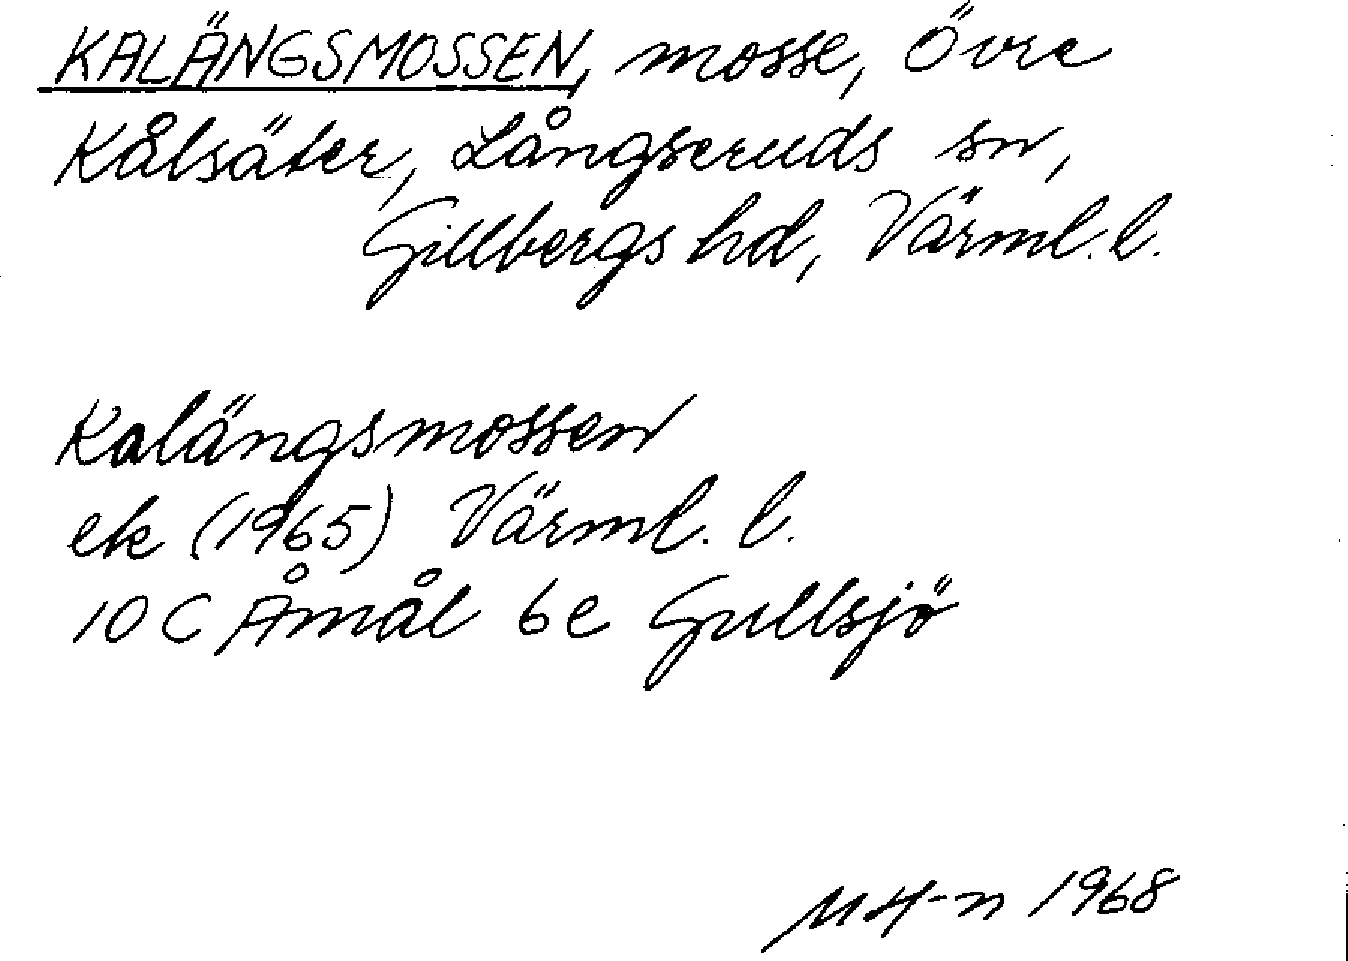 KALÄNGSMOSSEN, mosse, Övre
Kålsäter, Långseruds sn,
Gillbergs hd, Värml. l.
Kalängsmossen
ek (1965) Värml. l.
10 C Åmål 6e Gullsjö
MH-n 1968